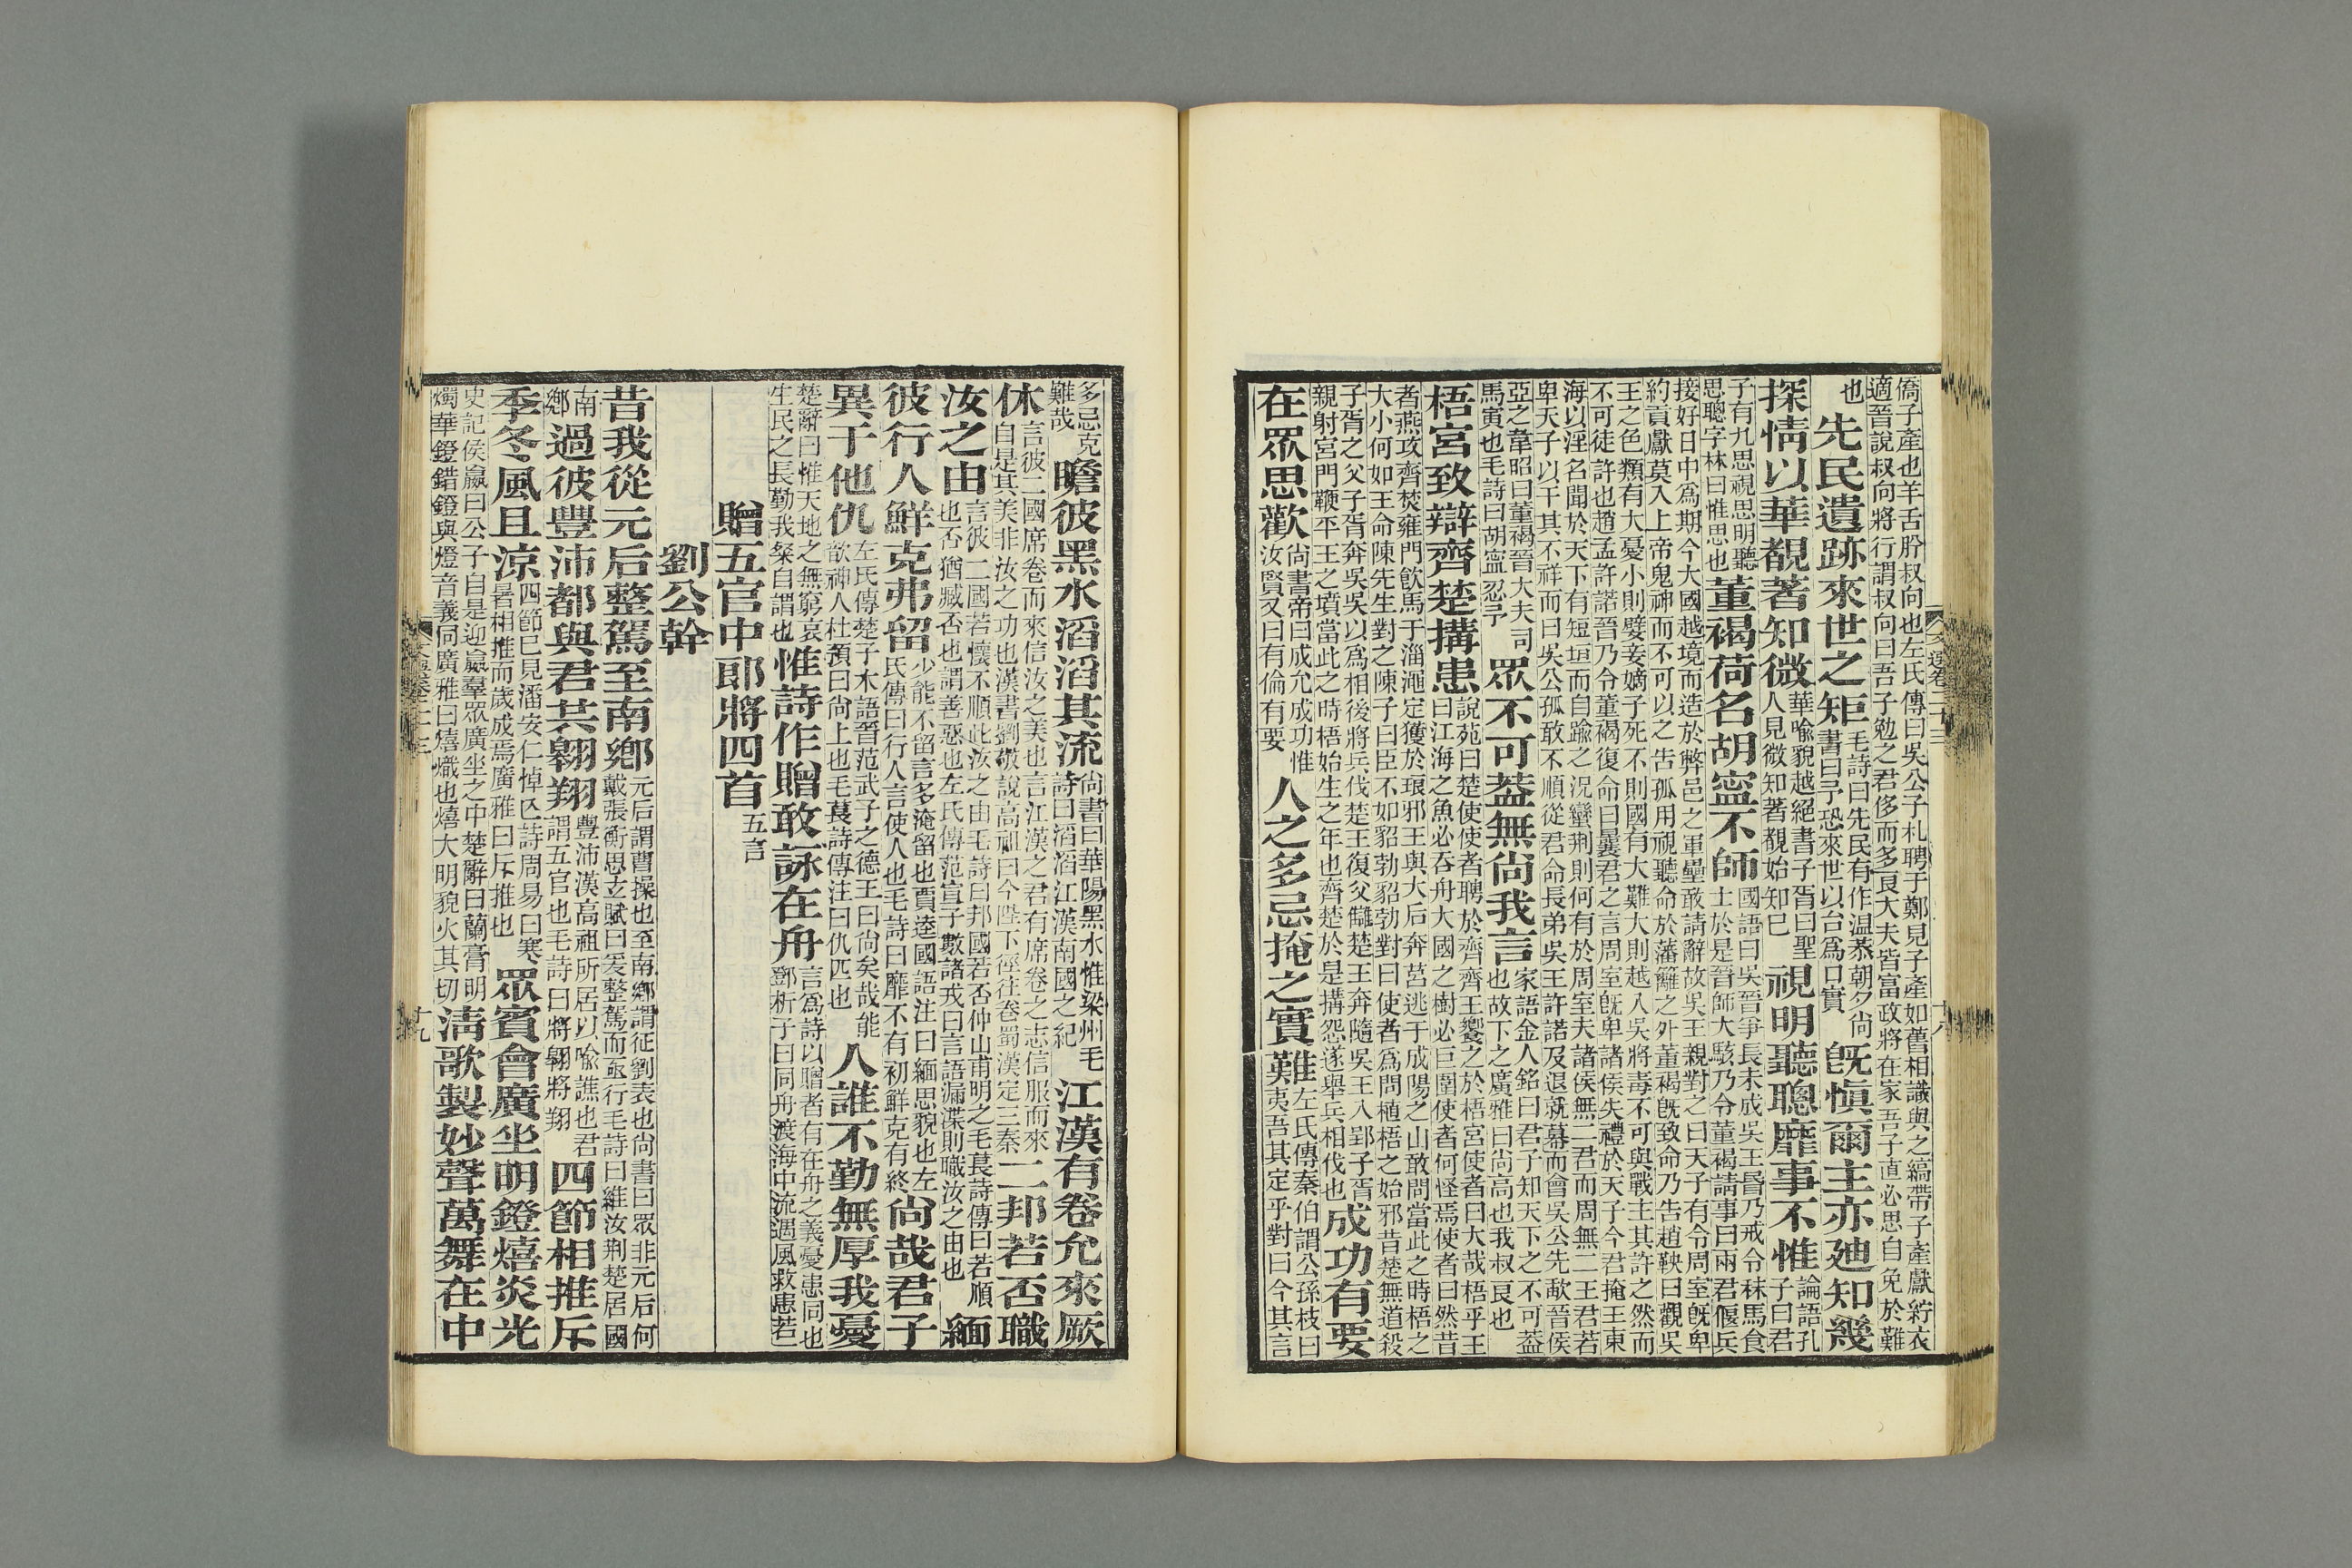 僑子產也羊舌肸叔向也左氏傳曰吳公子札聘于鄭見子產如舊相識與之縞帶子產獻紵衣
適晉說叔向將行謂叔向曰吾子勉之君侈而多良大夫皆富政將在家吾子直必思自免於難
也 先民遺跡來世之矩 毛詩曰先民有作温恭朝夕尚書曰予恐來世以台爲口實 旣愼爾主亦廸知幾
探情以華覩著知微 華喻貌越絕書子胥曰聖人見微知著覩始知已 視明聽聰靡事不惟 論語孔子曰君
子有九思視思明聽思聰字林曰惟思也 董褐荷名胡寧不師 國語曰吳晉爭長未成吳王昬乃戒令秣馬食士於是晉師大駭乃令董褐請事曰兩君偃兵
接好日中爲期今大國越境而造於弊邑之軍壘敢請辭故吳王親對之曰天子有令周室旣卑
約貢獻莫入上帝鬼神而不可以之告孤用視聽命於藩籬之外董褐旣致命乃告趙鞅曰觀吳
王之色類有大憂小則嬖妾嫡子死不則國有大難大則越入吳將毒不可與戰主其許之然而
不可徒許也趙孟許諾晉乃令董褐復命曰曩君之言周室旣卑諸侯失禮於天子今君掩王東
海以淫名聞於天下有短垣而自踰之況蠻荆則何有於周室夫諸侯無二君而周無二王君若
卑天子以干其不祥而曰吳公孤敢不順從君命長弟吳王許諾及退就幕而會吳公先歃晉侯
亞之韋昭曰董褐晉大夫司馬寅也毛詩曰胡寧忍予 眾不可葢無尚我言 家語金人銘曰君子知天下之不可葢也故下之廣雅曰尚高也我叔良也
梧宮致辯齊楚搆患 說苑曰楚使使者聘於齊齊王饗之於梧宮使者曰大哉梧乎王曰江海之魚必吞舟大國之樹必巨圍使者何怪焉使者曰然昔
者燕攻齊焚雍門飮馬于淄澠定獲於琅邪王與大后奔莒逃于成陽之山敢問當此之時梧之
大小何如王命陳先生對之陳子曰臣不如貂勃貂勃對曰使者爲問植梧之始邪昔楚無道殺
子胥之父子胥奔吳吳以爲相後將兵伐楚王復父讎楚王奔隨吳王入郢子胥
親射宮門鞭平王之墳當此之時梧始生之年也齊楚於是搆怨遂舉兵相伐也 成功有要
在眾思歡 尚書帝曰成允成功惟汝賢又曰有倫有要 人之多忌掩之實難 左氏傳秦伯謂公孫枝曰夷吾其定乎對曰今其言
多忌克難哉 瞻彼黑水滔滔其流 尚書曰華陽黑水惟梁州毛詩曰滔滔江漢南國之紀 江漢有卷允來厥
休 言彼二國席卷而來信汝之美也言江漢之君有席卷之志信服而來自是其美非汝之功也漢書劉敬說高祖曰今陛下徑往卷蜀漢定三秦 二邦若否職
汝之由 言彼二國若懷不順此汝之由毛詩曰邦國若否仲山甫明之毛萇詩傳曰若順也否猶臧否也謂善惡也左氏傳范宣子數諸戎曰言語漏渫則職汝之由也 緬
彼行人鮮克弗留 少能不留言多淹留也賈逵國語注曰緬思貌也左氏傳曰行人言使人也毛詩曰靡不有初鮮克有終 尙哉君子
異于他仇 左氏傳楚子木語晉范武子之德王曰尚矣哉能歆神人杜預曰尚上也毛萇詩傳注曰仇匹也 人誰不勤無厚我憂
楚辭曰惟天地之無窮哀生民之長勤我粲自謂也 惟詩作贈敢詠在舟 言爲詩以贈者有在舟之義憂患同也鄧析子曰同舟渡海中流遇風救患若一
贈五官中郎將四首 五言
劉公幹
昔我從元后整駕至南鄉 元后謂曹操也至南鄉謂征劉表也尙書曰眾非元后何戴張衡思玄賦曰爰整駕而亟行毛詩曰維汝荆楚居國
南鄉 過彼豐沛都與君共翱翔 豐沛漢高祖所居以喻譙也君謂五官也毛詩曰將翱將翔 四節相推斥
季冬風且涼 四節已見潘安仁悼亾詩周易曰寒暑相推而歲成焉廣雅曰斥推也 眾賓會廣坐明鐙熺炎光
史記侯嬴曰公子自是迎嬴羣眾廣坐之中楚辭曰蘭膏明燭華鐙錯鐙與燈音義同廣雅曰熺熾也熺大明貌火其切 淸歌製妙聲萬舞在中